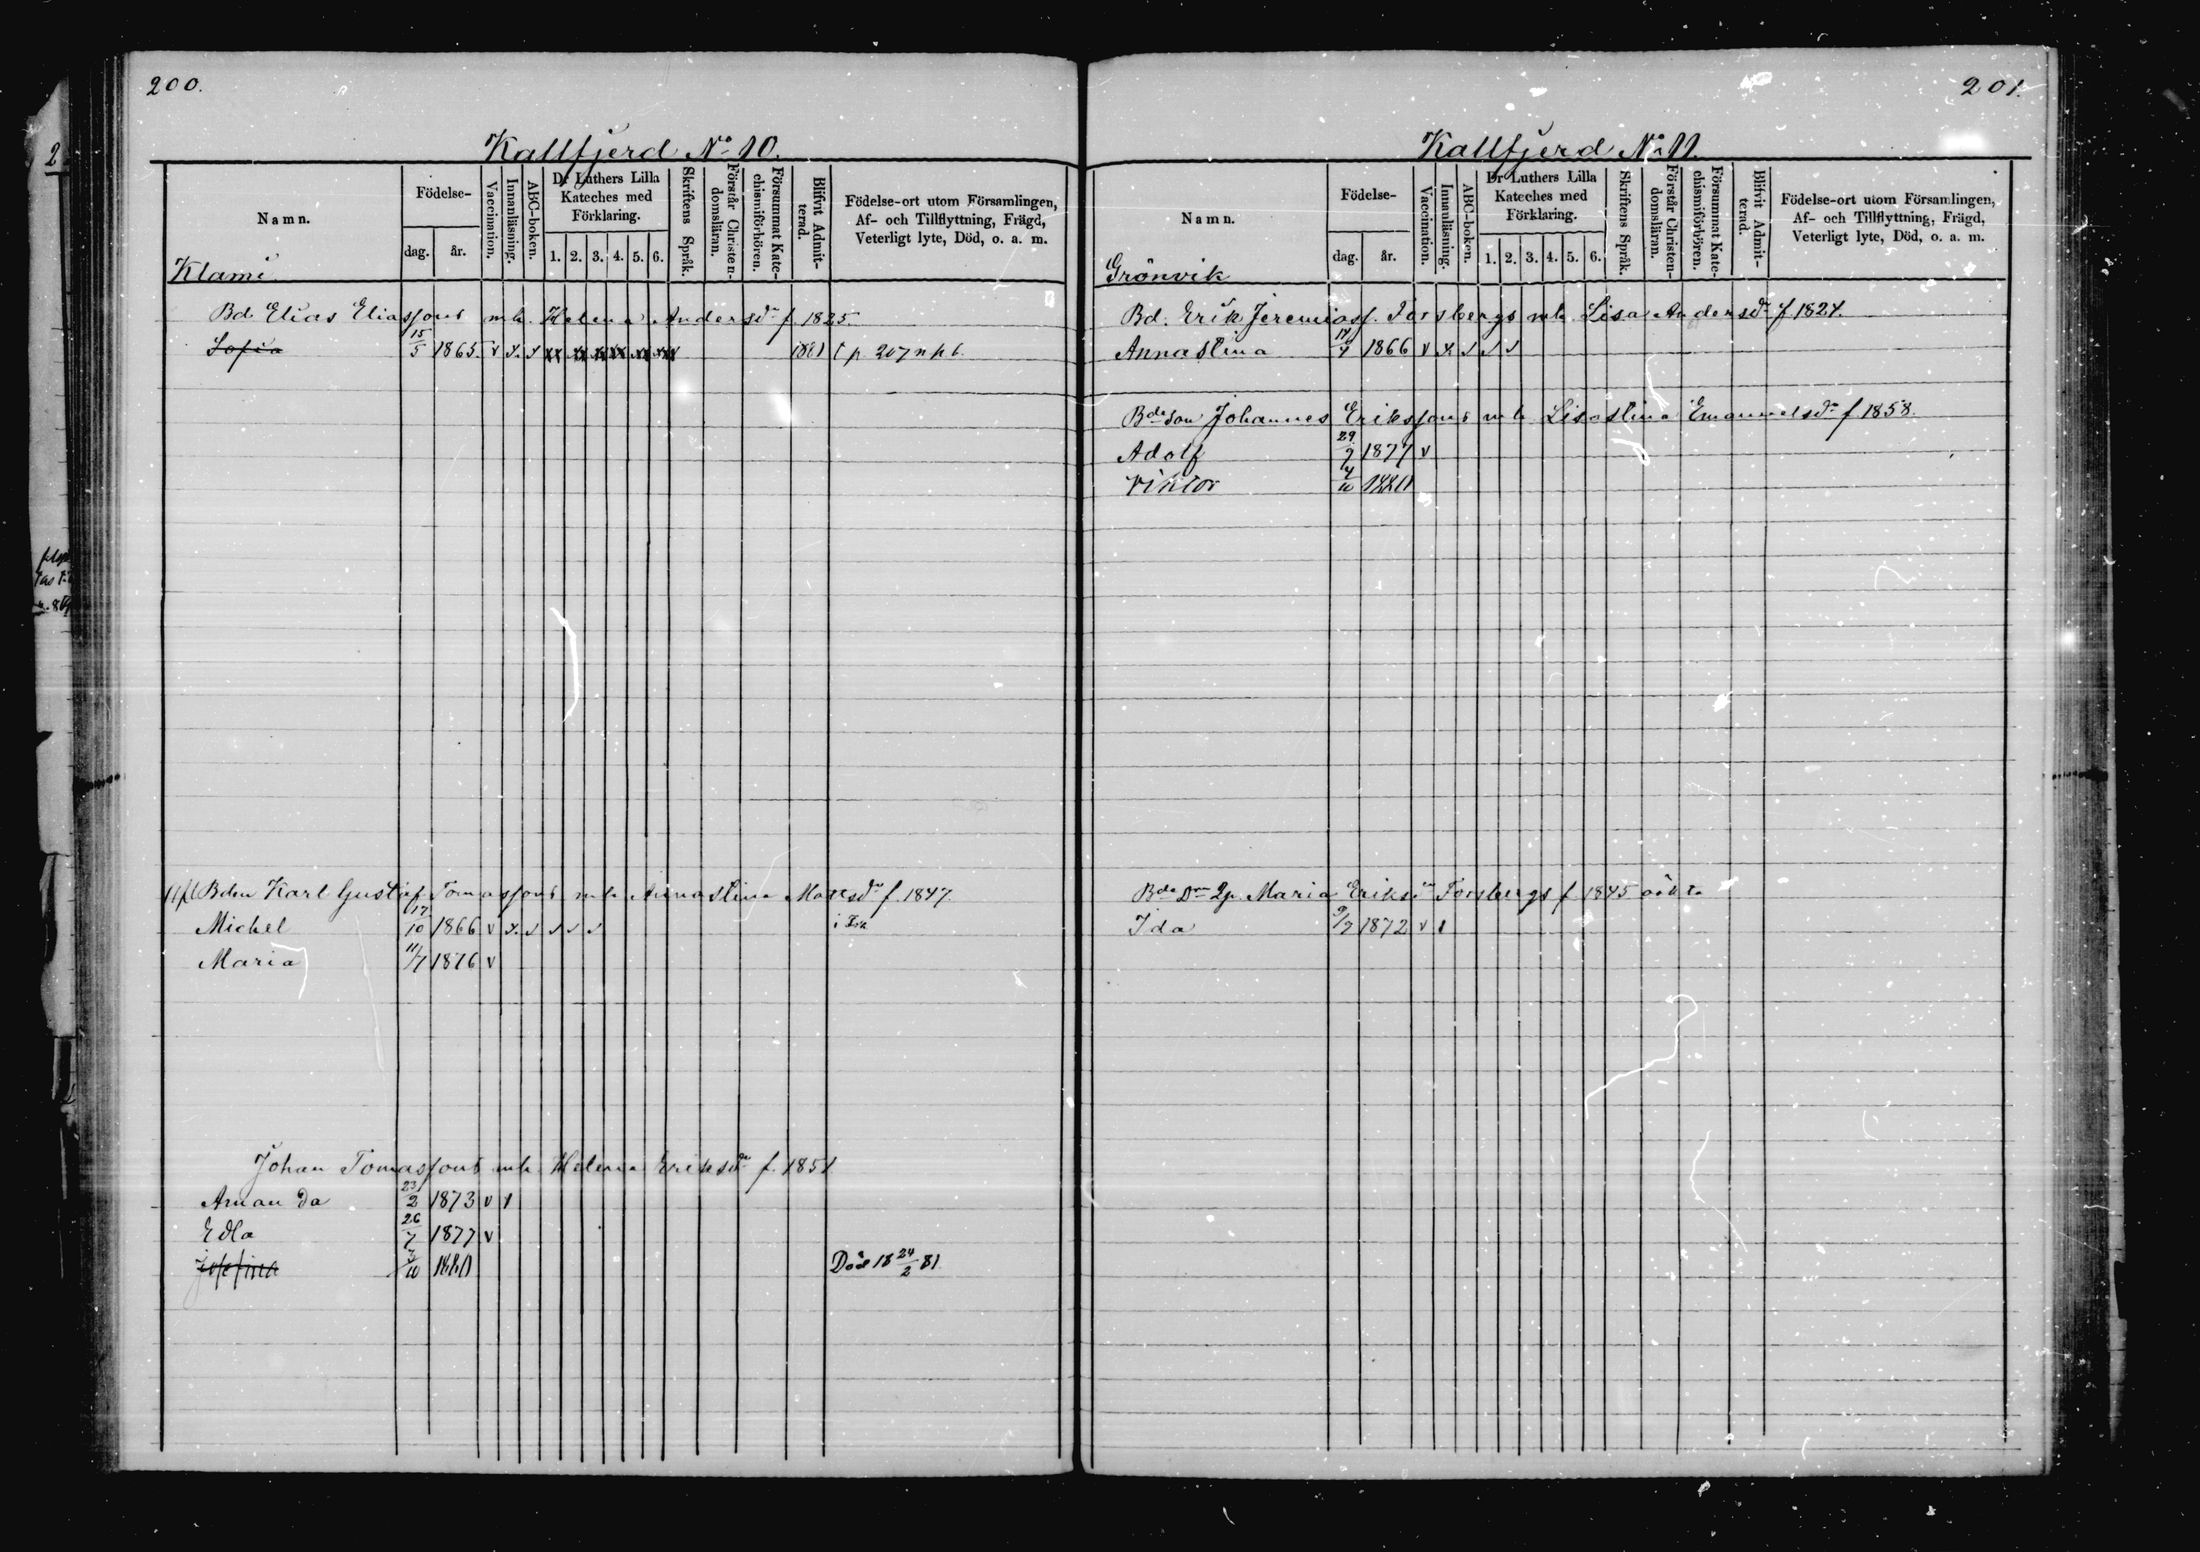 200.
Kallfjerd No 10.
Namn.
Födelse-
dag.
år.
Vaccination.
Innanläsning.
ABC-boken.
Dr Luthers Lilla
Kateches med
Förklaring.
1. 2. 3. 4. 5. 6.
Skriftens Språk.
Förstår Christen-
domsläran.
Försummat Kate-
chismiförhören.
Blifvit Admit-
terad.
Födelse-ort utom Församlingen,
Af- och Tillflyttning, Frägd,
Veterligt lyte, Död, o. a. m.
Klami
Bd Elias Eliassons mh. Helena Andersdr f. 1825.
Sofia 15/5 1865. v x 1881 t p 207
Bdn Karl Gustaf Tomassons mh Annastina Mattsdr f. 1847.
Michel 17/10 1866 v x
Maria 11/7 1876 v
Johan Tomassons mh. Helena Eriksdr f. 1851
Amanda 23/2 1873 v
Edla 26/7 1877 v
Josefina 3/10 1880 Död 18 24/2 81
201.
Kallfjerd No 11.
Namn.
Födelse-
dag.
år.
Vaccination.
Innanläsning.
ABC-boken.
Dr Luthers Lilla
Kateches med
Förklaring.
1. 2. 3. 4. 5. 6.
Skriftens Språk.
Förstår Christen-
domsläran.
Försummat Kate-
chismiförhören.
Blifvit Admit-
terad.
Födelse-ort utom Församlingen,
Af- och Tillflyttning, Frägd,
Veterligt lyte, Död, o. a. m.
Grönvik
Bd. Erik Jeremiass. Forsbergs mh. Lisa Andersdr f 1824.
Annastina 1866 v x
Bde son Johannes Erikssons mh Lisastina Emanuelsdr f 1858.
Adolf 29/7 1877 v
Viktor 4/10 1880
Bde Dr Maria Eriksdr Forsbergs f 1845 oäkta
Ida 9/7 1872 v